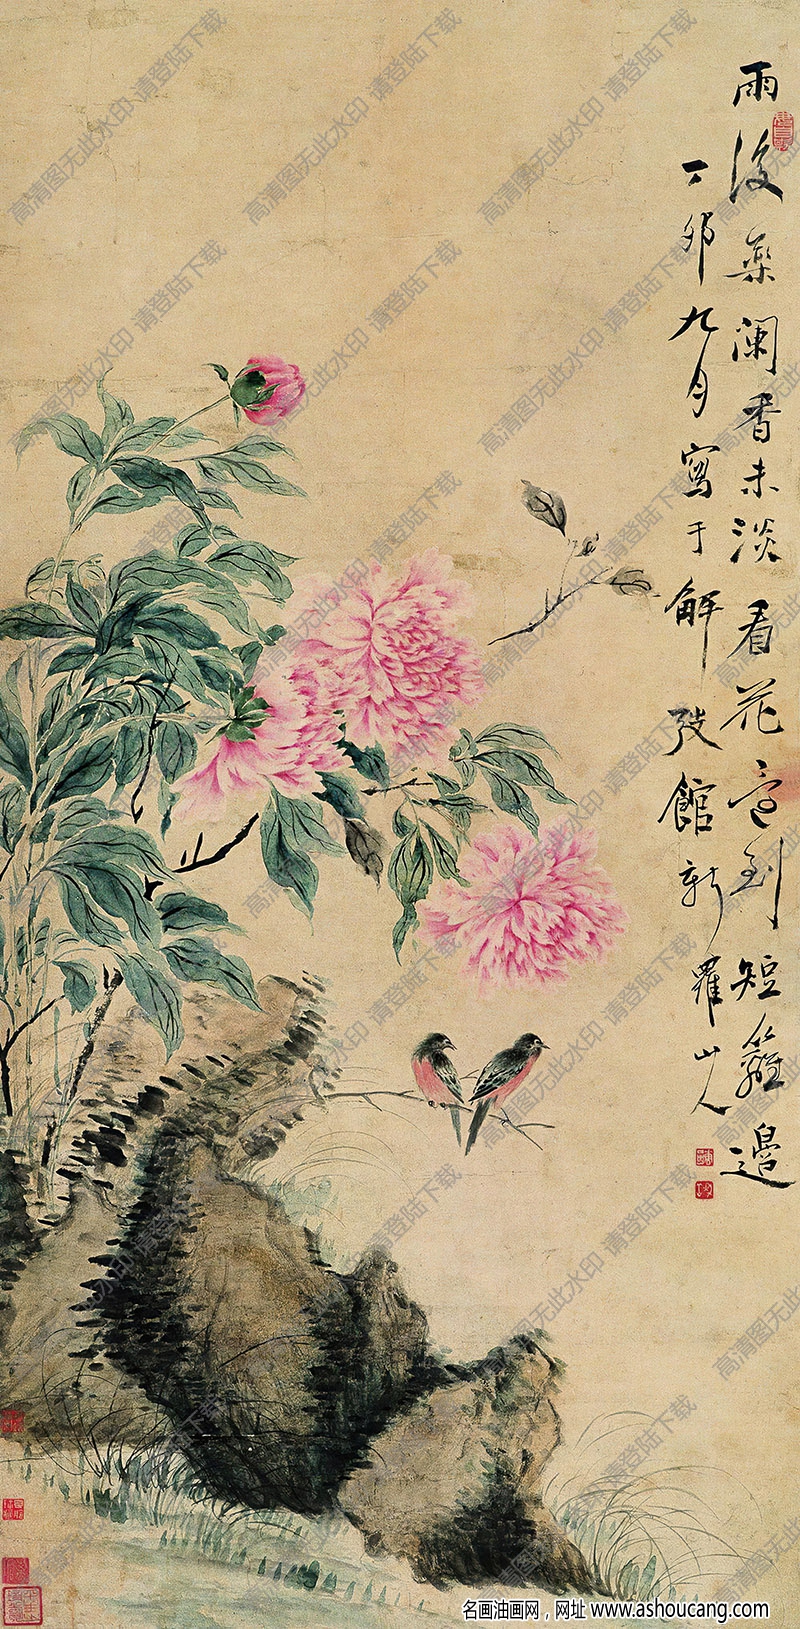 雨後藥闌香未淡看花意到短籬邊
丁卯九月寫于解弢館新羅山人
高清图无此水印 请登陆下载
名画油画网，网址 www.ashoucang.com